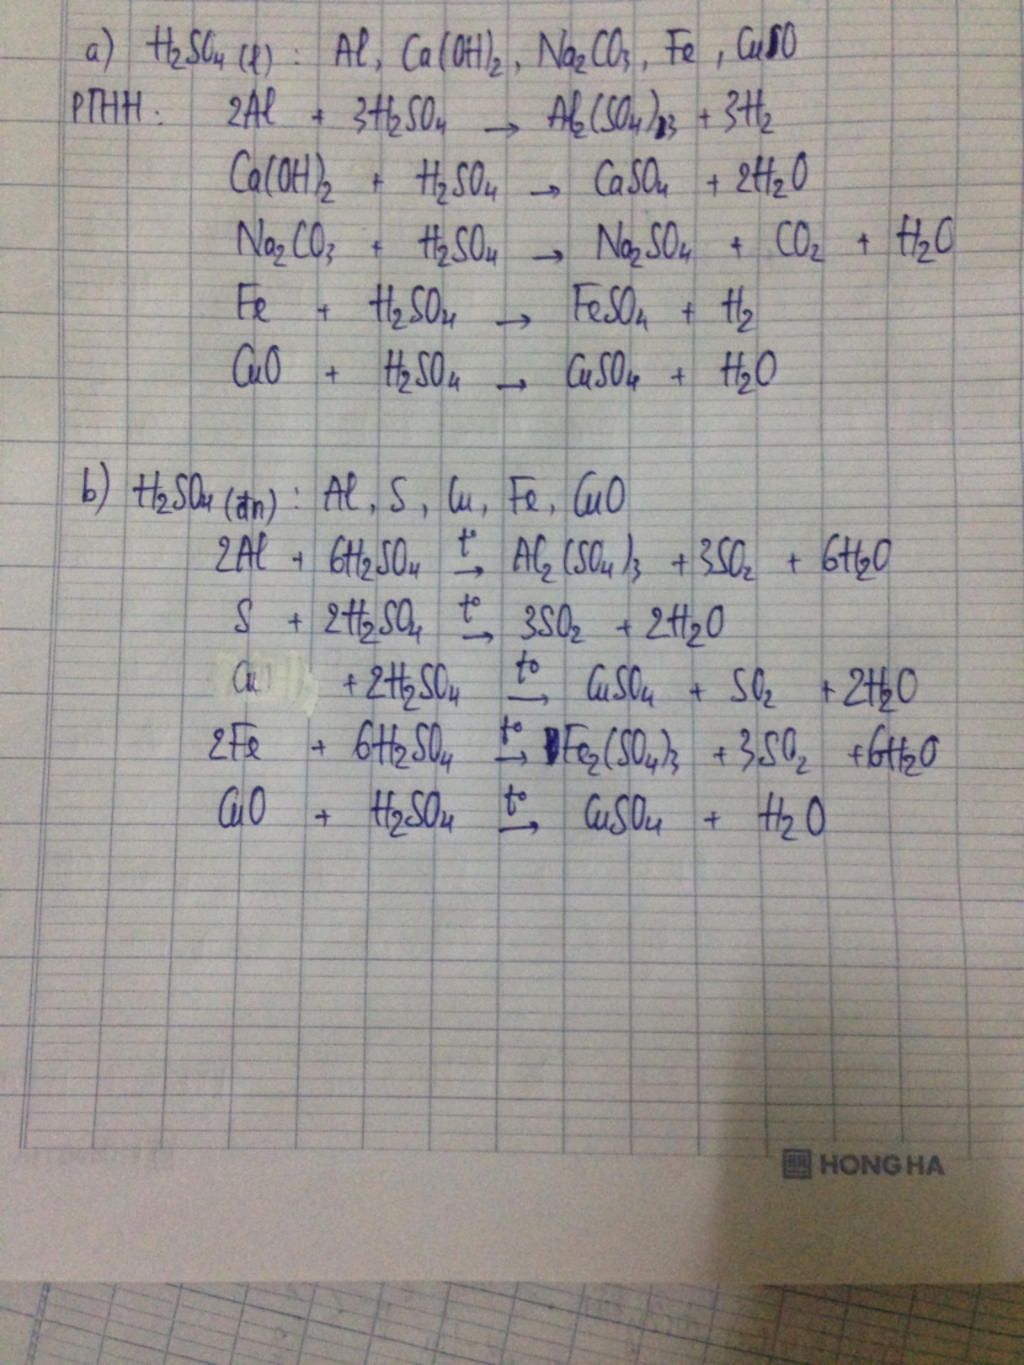 a) H₂SO₄ (l) : Al, Ca(OH)₂, Na₂CO₃, Fe, CuO
PTHH: 2Al + 3H₂SO₄ → Al₂(SO₄)₃ + 3H₂
Ca(OH)₂ + H₂SO₄ → CaSO₄ + 2H₂O
Na₂CO₃ + H₂SO₄ → Na₂SO₄ + CO₂ + H₂O
Fe + H₂SO₄ → FeSO₄ + H₂
CuO + H₂SO₄ → CuSO₄ + H₂O
b) H₂SO₄ (đn) : Al, S, Cu, Fe, CuO
2Al + 6H₂SO₄ t° → Al₂(SO₄)₃ + 3SO₂ + 6H₂O
S + 2H₂SO₄ t° → 3SO₂ + 2H₂O
Cu + 2H₂SO₄ t° → CuSO₄ + SO₂ + 2H₂O
2Fe + 6H₂SO₄ t° → Fe₂(SO₄)₃ + 3SO₂ + 6H₂O
CuO + H₂SO₄ t° → CuSO₄ + H₂O
HH HONG HA